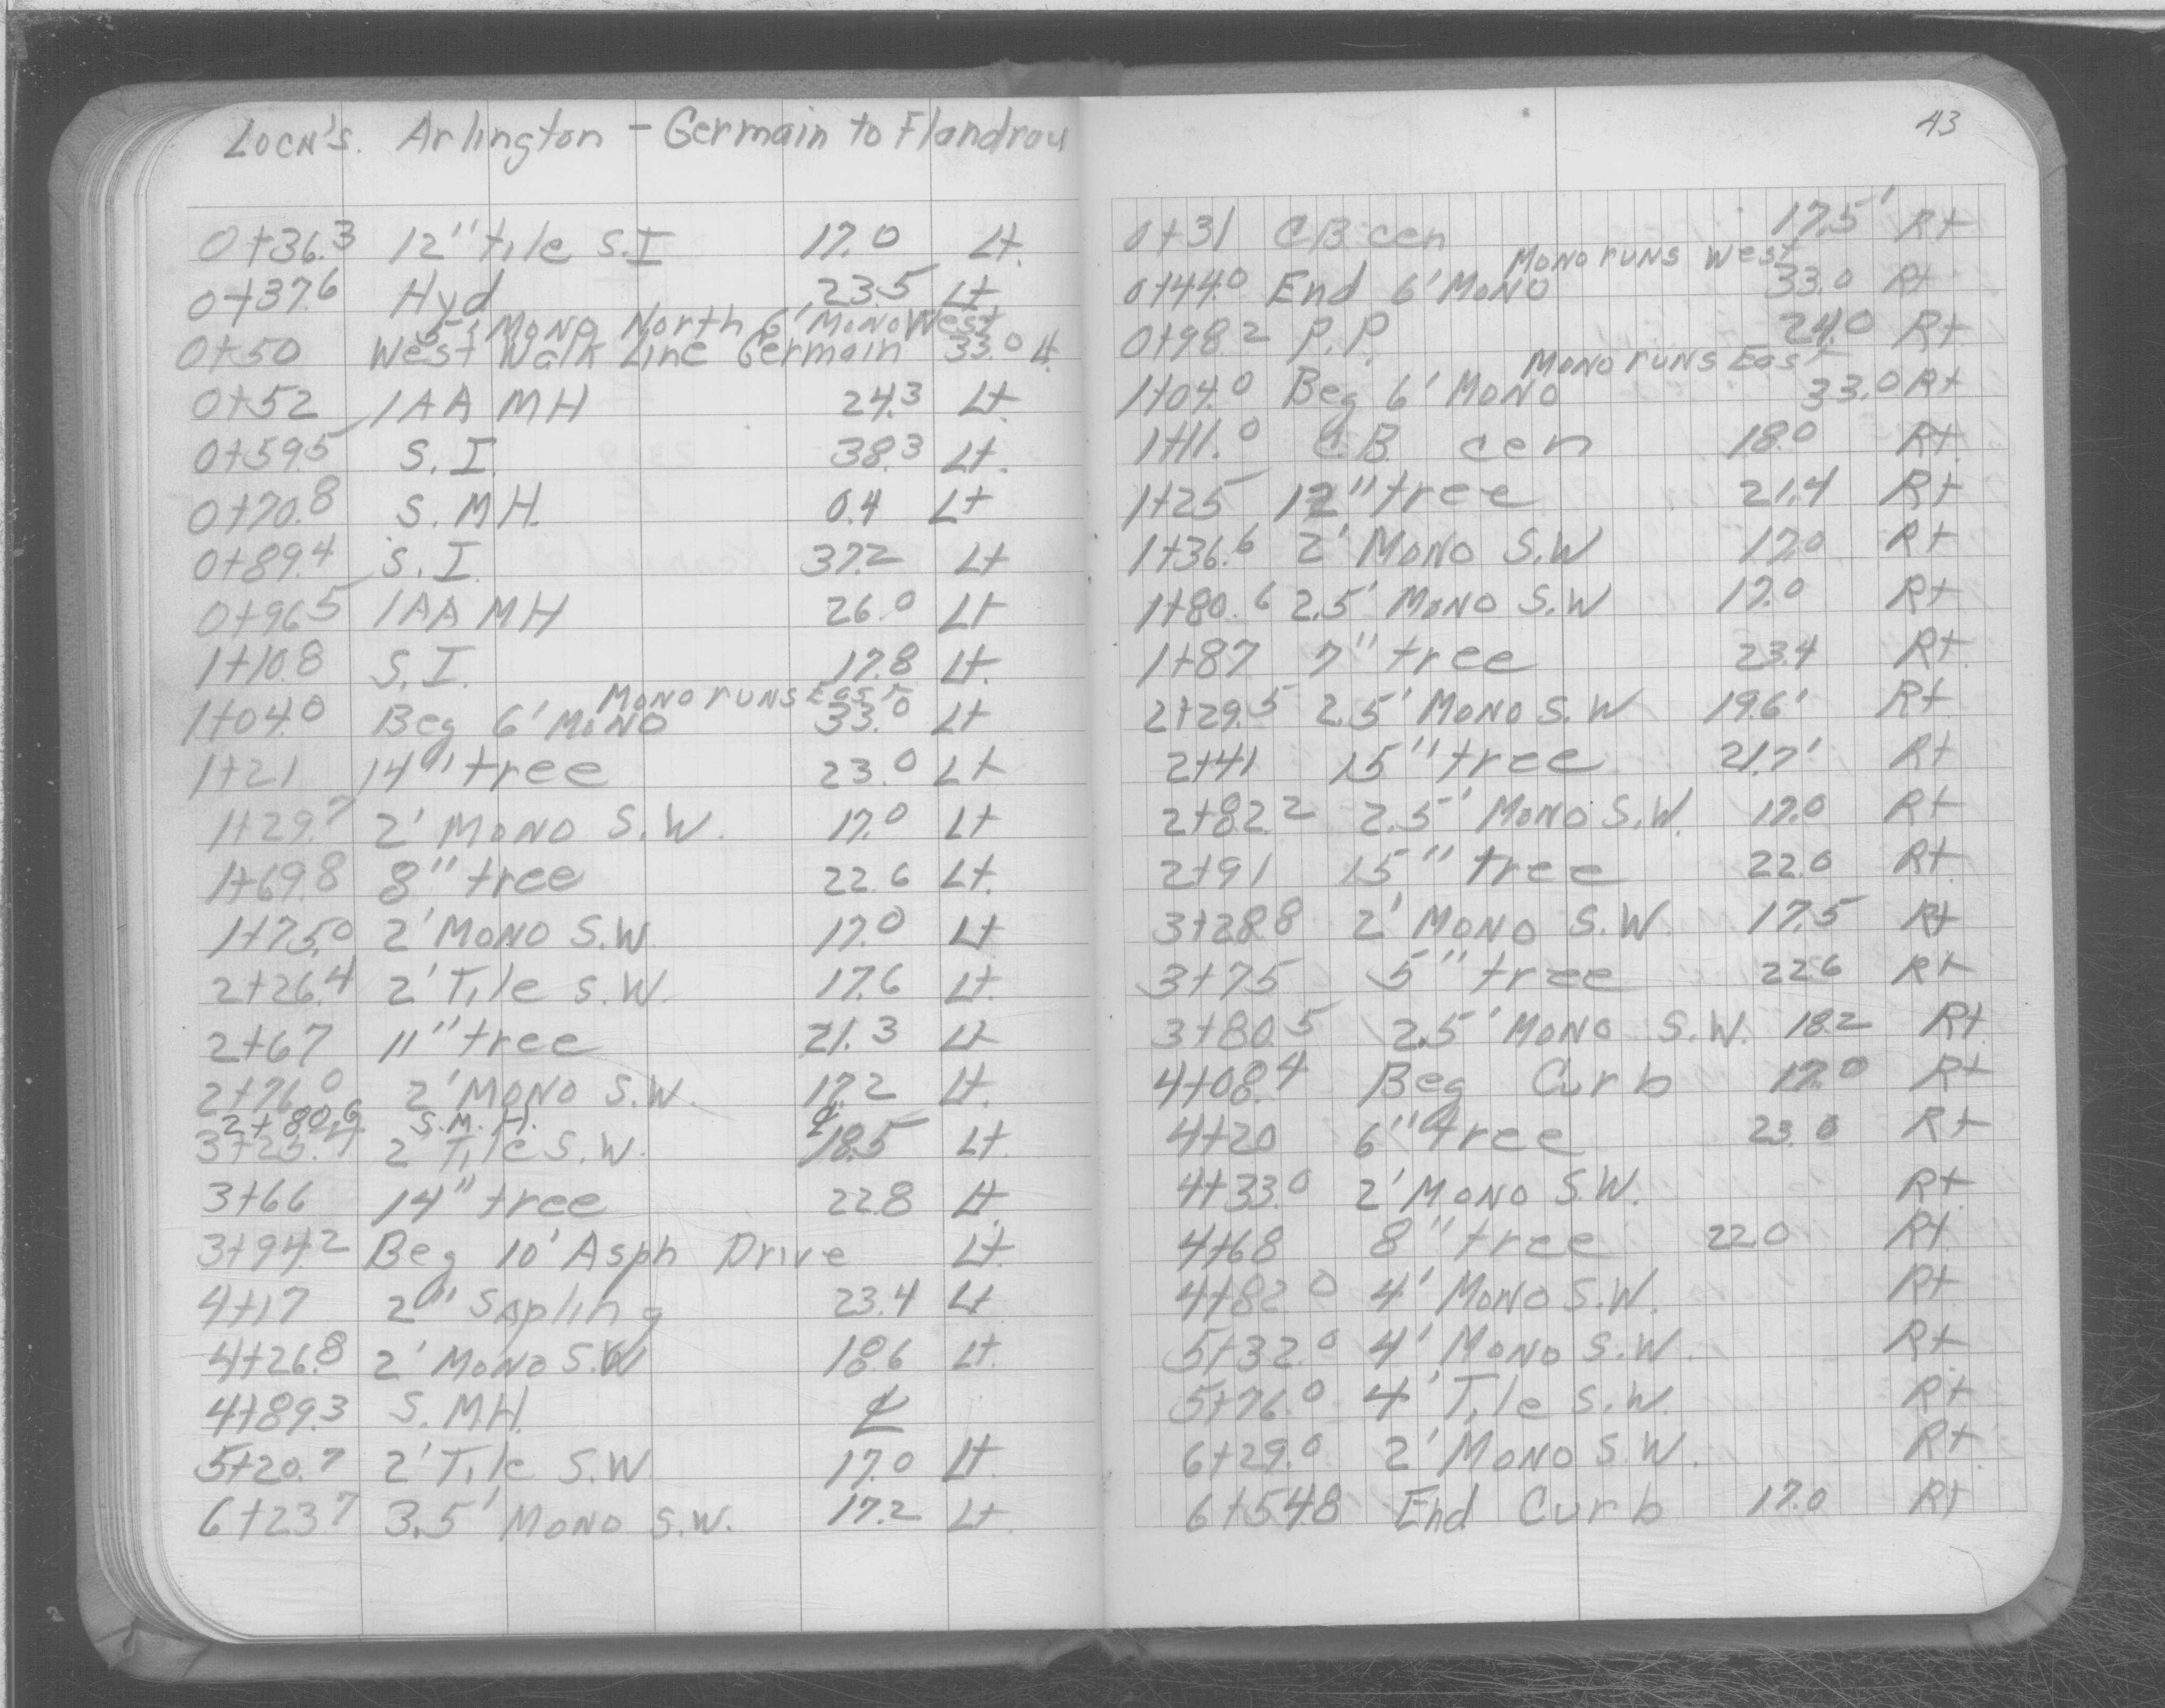 Locn's. Arlington - Germain to Flandrau
0+36.3 12" tile S.I 17.0 Lt.
0+37.6 Hyd 23.5 Lt.
5' Mono North 6' Mono West
0+50 West Walk Line Germain 33.0 Lt.
0+52 1AA MH 24.3 Lt.
0+59.5 S.I. 38.3 Lt.
0+70.8 S.MH. 0.4 Lt
0+89.4 S.I. 37.2 Lt
0+96.5 1AA MH 26.0 Lt
1+10.8 S.I. 17.8 Lt.
Mono runs East
1+04.0 Beg 6' Mono 33.0 Lt
1+21 14" tree 23.0 Lt
1+29.7 2' Mono S.W. 17.0 Lt
1+69.8 8" tree 22.6 Lt.
1+75.0 2' Mono S.W. 17.0 Lt
2+26.4 2' Tile S.W. 17.6 Lt.
2+67 11" tree 21.3 Lt
2+76.0 2' Mono S.W. 17.2 Lt.
2+80.6 S.M.H. ℄
3+23.4 2' Tile S.W. 18.5 Lt.
3+66 14" tree 22.8 Lt.
3+94.2 Beg 10' Asph Drive Lt.
4+17 2" Sapling 23.4 Lt
4+26.8 2' Mono S.W 18.6 Lt.
4+89.3 S.MH. ℄
5+20.7 2' Tile S.W. 17.0 Lt.
6+23.7 3.5' Mono S.W. 17.2 Lt.
43
0+31 C.B cen 17.5' Rt
Mono runs West
0+44.0 End 6' Mono 33.0 Rt
0+98.2 P.P. 24.0 Rt
Mono runs East
1+04.0 Beg 6' Mono 33.0 Rt
1+11.0 C.B. cen 18.0 Rt.
1+25 12" tree 21.4 Rt
1+36.6 2' Mono S.W 17.0 Rt
1+80.6 2.5' Mono S.W 17.0 Rt
1+87 7" tree 23.4 Rt.
2+29.5 2.5' Mono S.W 19.6' Rt.
2+41 15" tree 21.7' Rt
2+82.2 2.5' Mono S.W. 17.0 Rt
2+91 15" tree 22.0 Rt.
3+28.8 2' Mono S.W. 17.5 Rt
3+75 5" tree 22.6 Rt
3+80.5 2.5' Mono S.W. 18.2 Rt.
4+08.4 Beg Curb 17.0 Rt
4+20 6" tree 23.0 Rt
4+33.0 2' Mono S.W. Rt
4+68 8" tree 22.0 Rt.
4+82.0 4' Mono S.W. Rt
5+32.0 4' Mono S.W. Rt
5+76.0 4' Tile S.W. Rt
6+29.0 2' Mono S.W. Rt.
6+54.8 End Curb 17.0 Rt